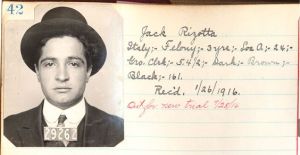 42
Jack Rizotta
Italy;- Felony;- 3 yrs;- Los A;- 26;-
Gro. Clrk;- 5.4/2;- Dark;- Brown;-
Black;- 161.
Rec'd. 1/26/1916.
Out for new trial
29262